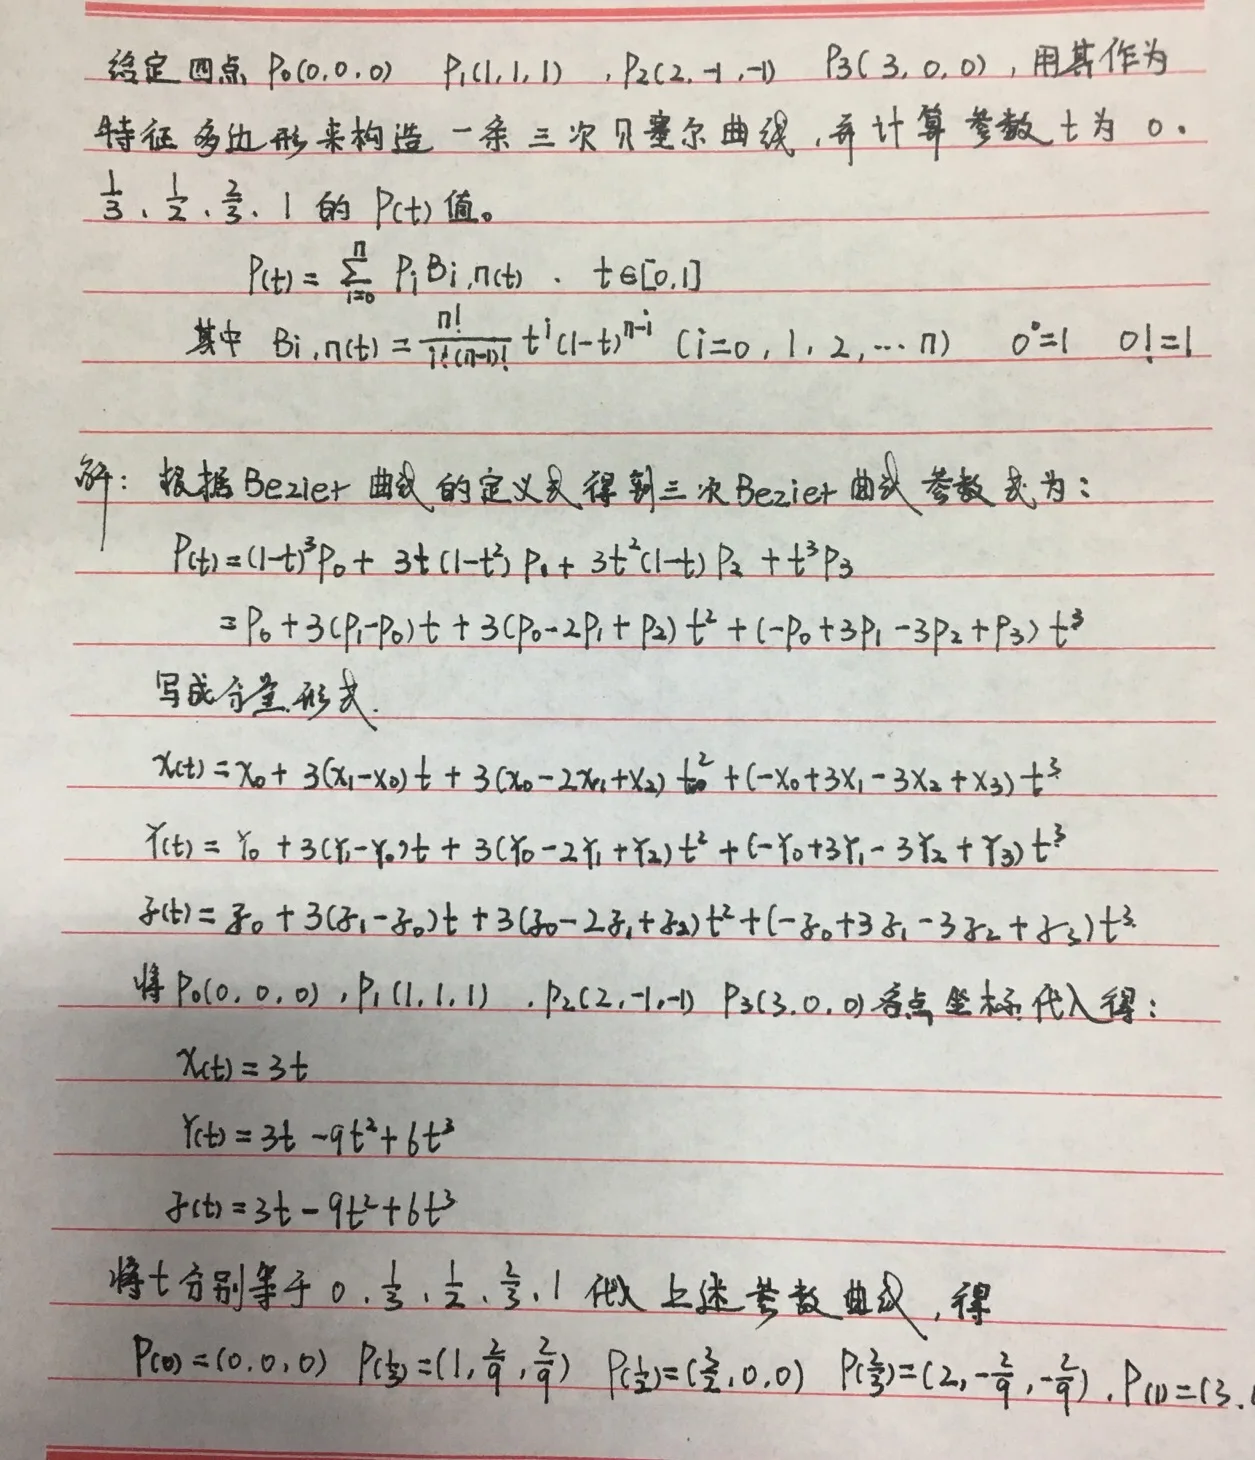 给定四点 P₀(0,0,0) P₁(1,1,1) , P₂(2,-1,-1) P3(3,0,0) , 用其作为
特征多边形来构造一条三次贝塞尔曲线,并计算参数t为 0、
1/3、1/2、2/3、1 的 P(t) 值。
P(t) = ∑ⁿᵢ₌₀ Pᵢ Bi,n(t) . t∈[0,1]
其中 Bi,n(t) = n!/i!(n-i)! tⁱ(1-t)ⁿ⁻ⁱ (i=0,1,2,…n) 0°=1 0!=1
解: 根据Bezier曲线的定义式得到三次Bezier曲线参数式为:
P(t)=(1-t)³P₀+ 3t(1-t²)P₁+ 3t²(1-t)P₂ +t³P₃
=P₀+3(P₁-P₀)t+3(P₀-2P₁+P₂)t²+(-P₀+3P₁-3P₂+P₃)t³
写成分量形式.
x(t)=x₀+3(x₁-x₀)t+3(x₀-2x₁+x₂)t²+(-x₀+3x₁-3x₂+x₃)t³
Y(t)=Y₀+3(Y₁-Y₀)t+3(Y₀-2Y₁+Y₂)t²+(-Y₀+3Y₁-3Y₂+Y₃)t³
z(t)=z₀+3(z₁-z₀)t+3(z₀-2z₁+z₂)t²+(-z₀+3z₁-3z₂+z₃)t³
将P₀(0,0,0),P₁(1,1,1) ,P₂(2,-1,-1) P₃(3,0,0)各点坐标代入得:
x(t)=3t
Y(t)=3t-9t²+6t³
z(t)=3t-9t²+6t³
将t分别等于0、1/3、1/2、2/3、1代入上述参数曲线,得
P(0)=(0,0,0) P(1/3)=(1,2/9,2/9) P(1/2)=(3/2,0,0) P(2/3)=(2,-2/9,-2/9),P(1)=(3,